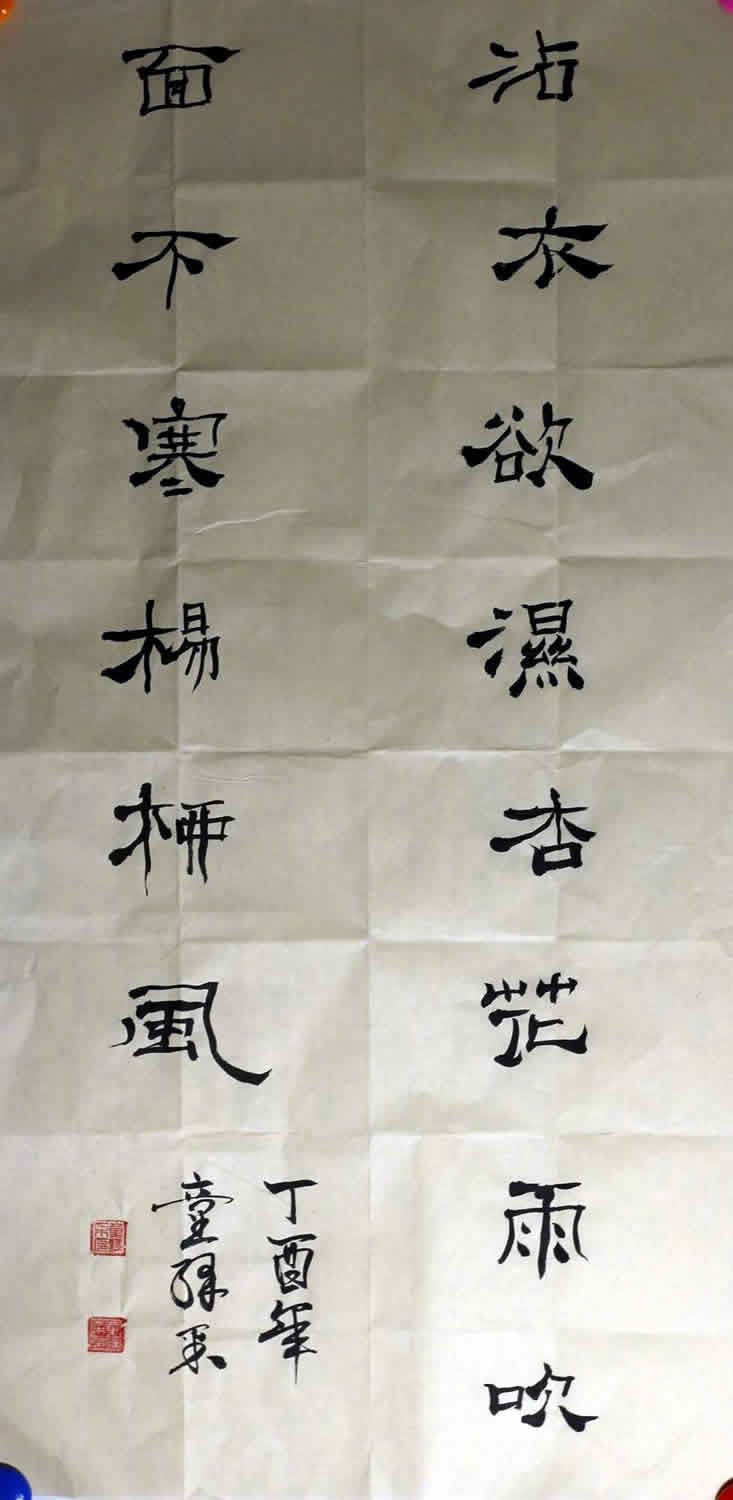 沾衣欲濕杏花雨吹
面不寒楊柳風
丁酉年